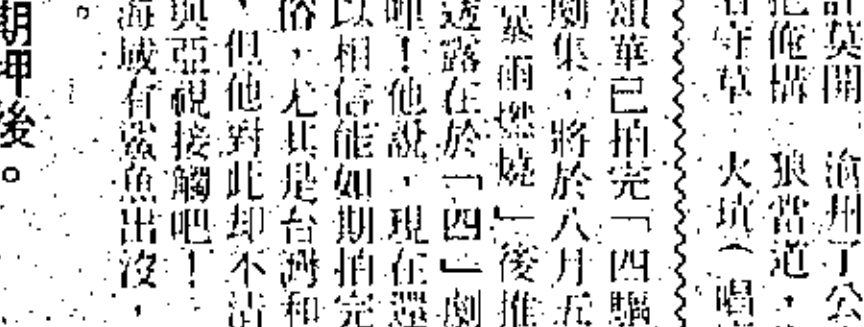 莫開 滄州丁公
俺構 狼當道，
守草 火坑（唱
頌華已拍完「四驅
劇集，將於八月五
暴雨燃燒」後推
透露在於「四」劇
！他說，現在還
以相信能如期拍完
俗，尤其是台灣和
，但他對此却不清
與亞視接觸吧！
海域有鯊魚出沒，
。
期押後。